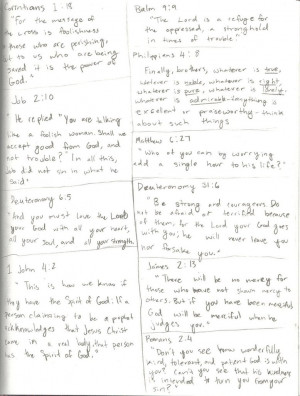 Corinthians 1:18
"For the message of
the cross is foolishness
those who are perishing,
but to us who are being
saved it is the power of
God."
Job 2:10
He replied "You are talking
like a foolish woman. Shall we
accept good from God, and
not trouble?" In all this,
Job did not sin in what he
said.
Deuteronomy 6:5
"And you must love the Lord
your God with all your heart,
all your soul, and all your strength.
1 John 4:2
"This is how we know if
they have the Spirit of God: If a
person claiming to be a prophet
acknowledges that Jesus Christ
came in a real body, that person
has the Spirit of God."
Psalm 9:9
"The Lord is a refuge for
the oppressed, a stronghold
in times of trouble"
Philippians 4:8
Finally, brothers, whatever is true,
whatever is noble, whatever is right,
whatever is pure, whatever is lovely,
whatever is admirable-if anything is
excellent or praiseworthy-think
about such things
Matthew 6:27
"Who of you can by worrying
add a single hour to his life?"
Deuteronomy 31:6
"Be strong and courageous. Do
not be afraid or terrified because
of them, for the Lord your God goes
with you; he will never leave you
nor forsake you."
James 2:13
"There will be no mercy for
those who have not shown mercy to
others. But if you have been merciful
God will be merciful when he
judges you."
Romans 2:4
"Don't you see how wonderfully
kind, tolerant, and patient God is with
you? Can't you see that his kindness
is intended to turn you from your
sin?"